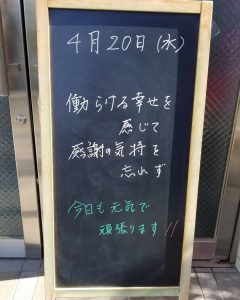 4月20日(水)
働らける幸せを
感じて
感謝の気持を
忘れず
今日も元気で
頑張ります!!